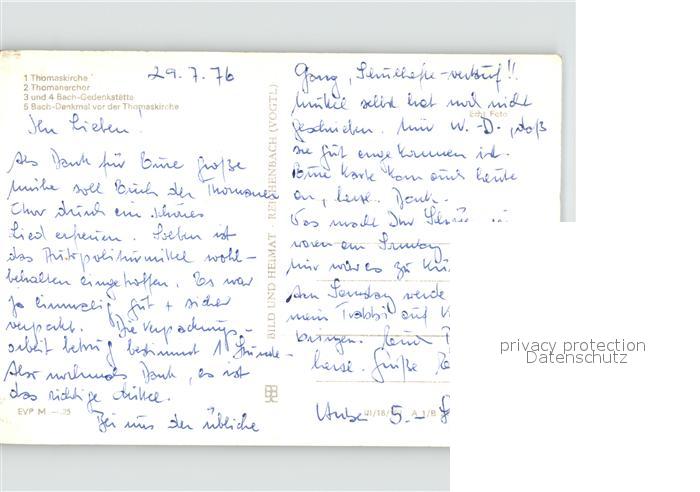 1 Thomaskirche
2 Thomanerchor
3 und 4 Bach-Gedenkstätte
5 Bach-Denkmal vor der Thomaskirche
29.7.76
Ihr Lieben!
Als Dank für Eure große
Mühe soll Euch der Thomaner
Chor durch ein schönes
Lied erfreuen. Soeben ist
das Autopoliturmittel wohl-
behalten eingetroffen. Es war
ja einmalig gut + sicher
verpackt. Die Verpackungs-
arbeit betrug bestimmt 1 Stunde.
Also nochmals Dank, es ist
das richtige Mittel.
Bei uns der übliche
EVP M —.25
BILD UND HEIMAT · REICHENBACH (VOGTL)
Gang, Schulhefte-verkauf!!
selbst hat noch nicht
Echt Foto
geschrieben. Nur W.-D., daß
sie gut angekommen ist.
Eure Karte kam auch heute
an, herzl. Dank.
Was macht Ihr
waren am Sonntag
mir war es zu
Am Samstag werde
mein Trabbi auf
bringen.
herzl. Grüße
5.-
III/18/ A 1/B
privacy protection
Datenschutz